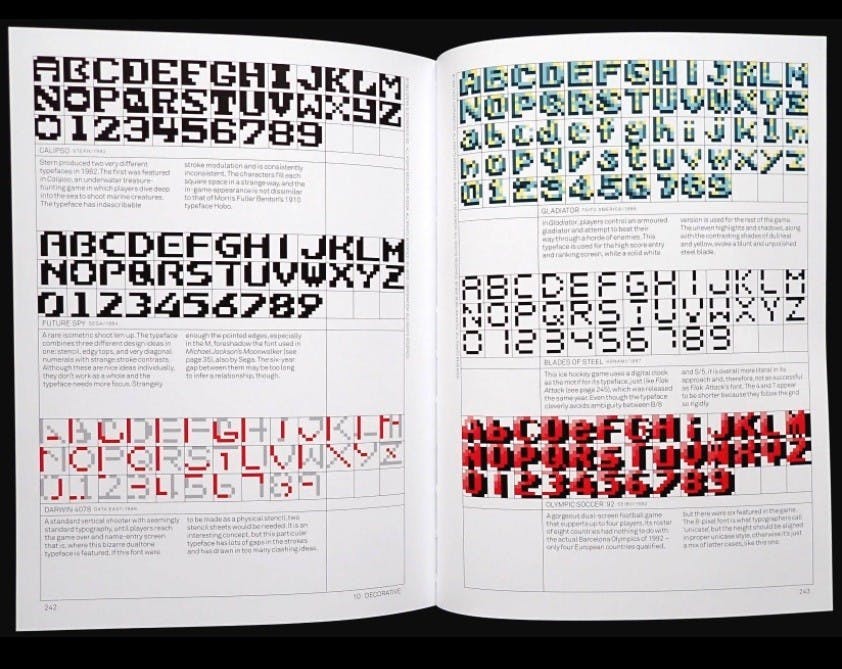 ABCDEFGHIJKLM
NOPQRSTUVWXYZ
0123456789
CALIPSO STERN/1982
Stern produced two very different
typefaces in 1982. The first was featured
in Calipso, an underwater treasure-
hunting game in which players dive deep
into the sea to shoot marine creatures.
The typeface has indescribable
stroke modulation and is consistently
inconsistent. The characters fill each
square space in a strange way, and the
in-game appearance is not dissimilar
to that of Morris Fuller Benton's 1910
typeface Hobo.
ABCDEFGHIJKLM
NOPQRSTUVWXYZ
0123456789
FUTURE SPY SEGA/1984
A rare isometric shoot 'em up. The typeface
combines three different design ideas in
one: stencil, edgy tops, and very diagonal
numerals with strange stroke contrasts.
Although these are nice ideas individually,
they don't work as a whole and the
typeface needs more focus. Strangely
enough the pointed edges, especially
in the M, foreshadow the font used in
Michael Jackson's Moonwalker (see
page 35), also by Sega. The six-year
gap between them may be too long
to infer a relationship, though.
ABCDEFGHIJKLM
NOPQRSTUVWXYZ
0123456789
DARWIN 4078 DATA EAST/1986
A standard vertical shooter with seemingly
standard typography, until players reach
the game over and name-entry screen
that is, where this bizarre dualtone
typeface is featured. If this font were
to be made as a physical stencil, two
stencil sheets would be needed. It is an
interesting concept, but this particular
typeface has lots of gaps in the strokes
and has drawn in too many clashing ideas.
242
10 DECORATIVE
ABCDEFGHIJKLM
NOPQRSTUVWXYZ
abcdefghijklm
nopqrstuvwxyz
0123456789
GLADIATOR TAITO AMERICA/1986
In Gladiator, players control an armoured
gladiator and attempt to beat their
way through a horde of enemies. This
typeface is used for the high score entry
and ranking screen, while a solid white
version is used for the rest of the game.
The uneven highlights and shadows, along
with the contrasting shades of dull teal
and yellow, evoke a blunt and unpolished
steel blade.
ABCDEFGHIJKLM
NOPQRSTUVWXYZ
0123456789
BLADES OF STEEL KONAMI/1987
This ice hockey game uses a digital clock
as the motif for its typeface, just like Flak
Attack (see page 245), which was released
the same year. Even though the typeface
cleverly avoids ambiguity between B/8
and S/5, it is overall more literal in its
approach and, therefore, not as successful
as Flak Attack's font. The 4 and 7 appear
to be shorter because they follow the grid
so rigidly.
AbCDeFGHiJKLM
NOPQRsTUVWXYZ
0123456789
OLYMPIC SOCCER '92 SEIBU/1992
A gorgeous dual-screen football game
that supports up to four players. Its roster
of eight countries had nothing to do with
the actual Barcelona Olympics of 1992 –
only four European countries qualified,
but there were six featured in the game.
The 8-pixel font is what typographers call
'unicase', but the height should be aligned
in proper unicase style, otherwise it's just
a mix of letter cases, like this one.
243